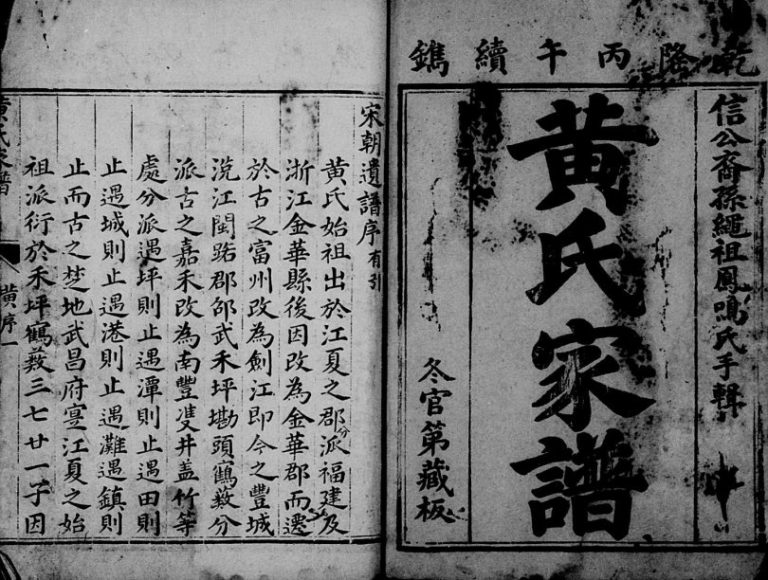 乾隆丙午續鐫
信公裔孫繩祖鳳鳴氏手輯
黃氏家譜
冬官第藏板
宋朝遺譜序有引
黃氏始祖出於江夏之郡分派福建及
浙江金華縣後因改為金華郡而遷
於古之富州改為劍江即今之豐城
沇江閩踞郡邵武禾坪墈頭鶴薮分
派古之嘉禾改為南豐雙井盖竹等
處分派遇坪則止遇潭則止遇田則
止遇城則止遇港則止遇灘遇鎮則
止而古之楚地武昌府寔江夏之始
祖派衍於禾坪鶴薮三七廿一子因
黃氏家譜
黃序一